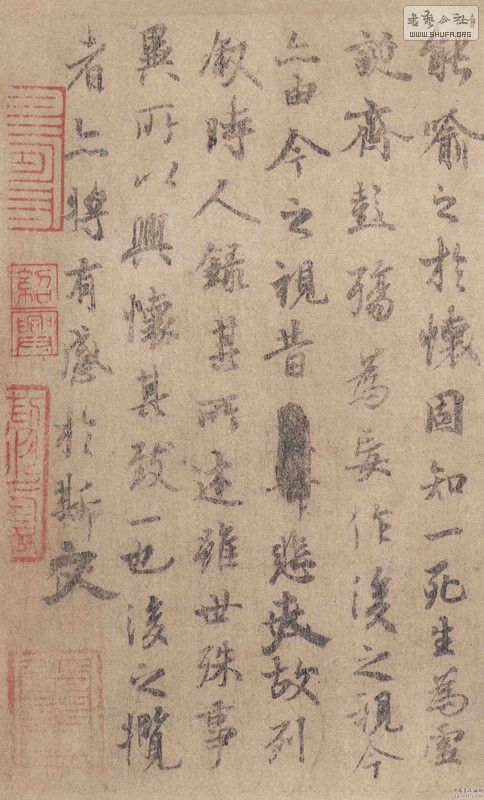 能喻之於懷固知一死生為虛
誕齊彭殤為妄作後之視今
亦由今之視昔悲夫故列
叙時人錄其所述雖世殊事
異所以興懷其致一也後之攬
者亦將有感於斯文
紹興
书艺公社
WWW.SHUFA.ORG